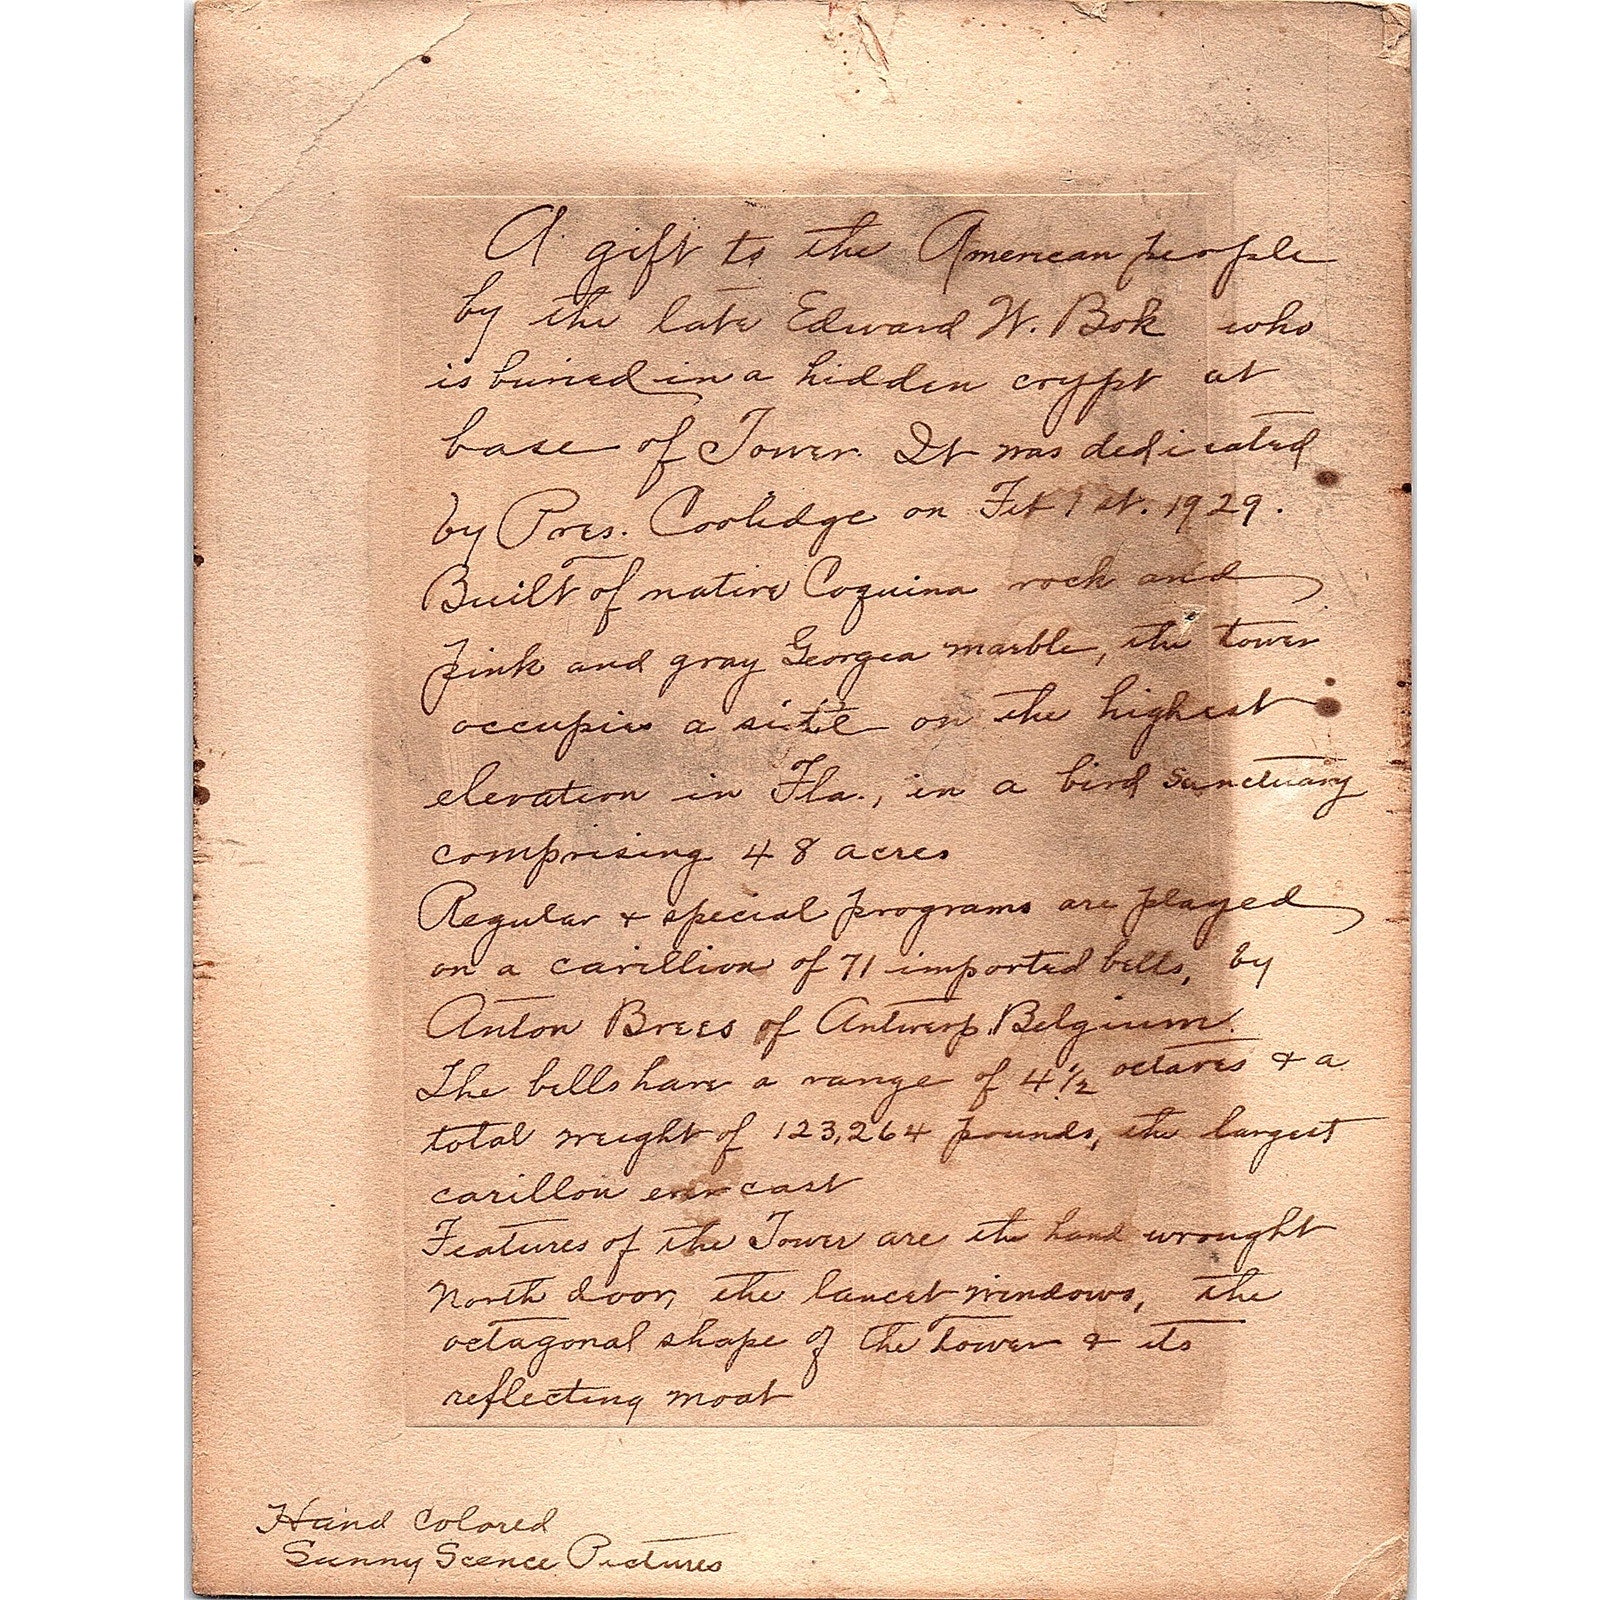 A gift to the American people
by the late Edward W. Bok who
is buried in a hidden crypt at
base of Tower. It was dedicated
by Pres. Coolidge on Feb 1st. 1929.
Built of native Coquina rock and
pink and gray Georgea marble, the tower
occupies a site on the highest
elevation in Fla., in a bird sanctuary
comprising 48 acres
Regular + special programs are played
on a carillion of 71 imported bells, by
Anton Brees of Antwerp, Belgium.
The bells have a range of 4 1/2 octaves & a
total weight of 123,264 pounds, the largest
carillon ever cast
Features of the Tower are the hand wrought
North door, the lancet windows, the
octagonal shape of the tower & its
reflecting moat
Hand Colored
Sunny Scence Pictures